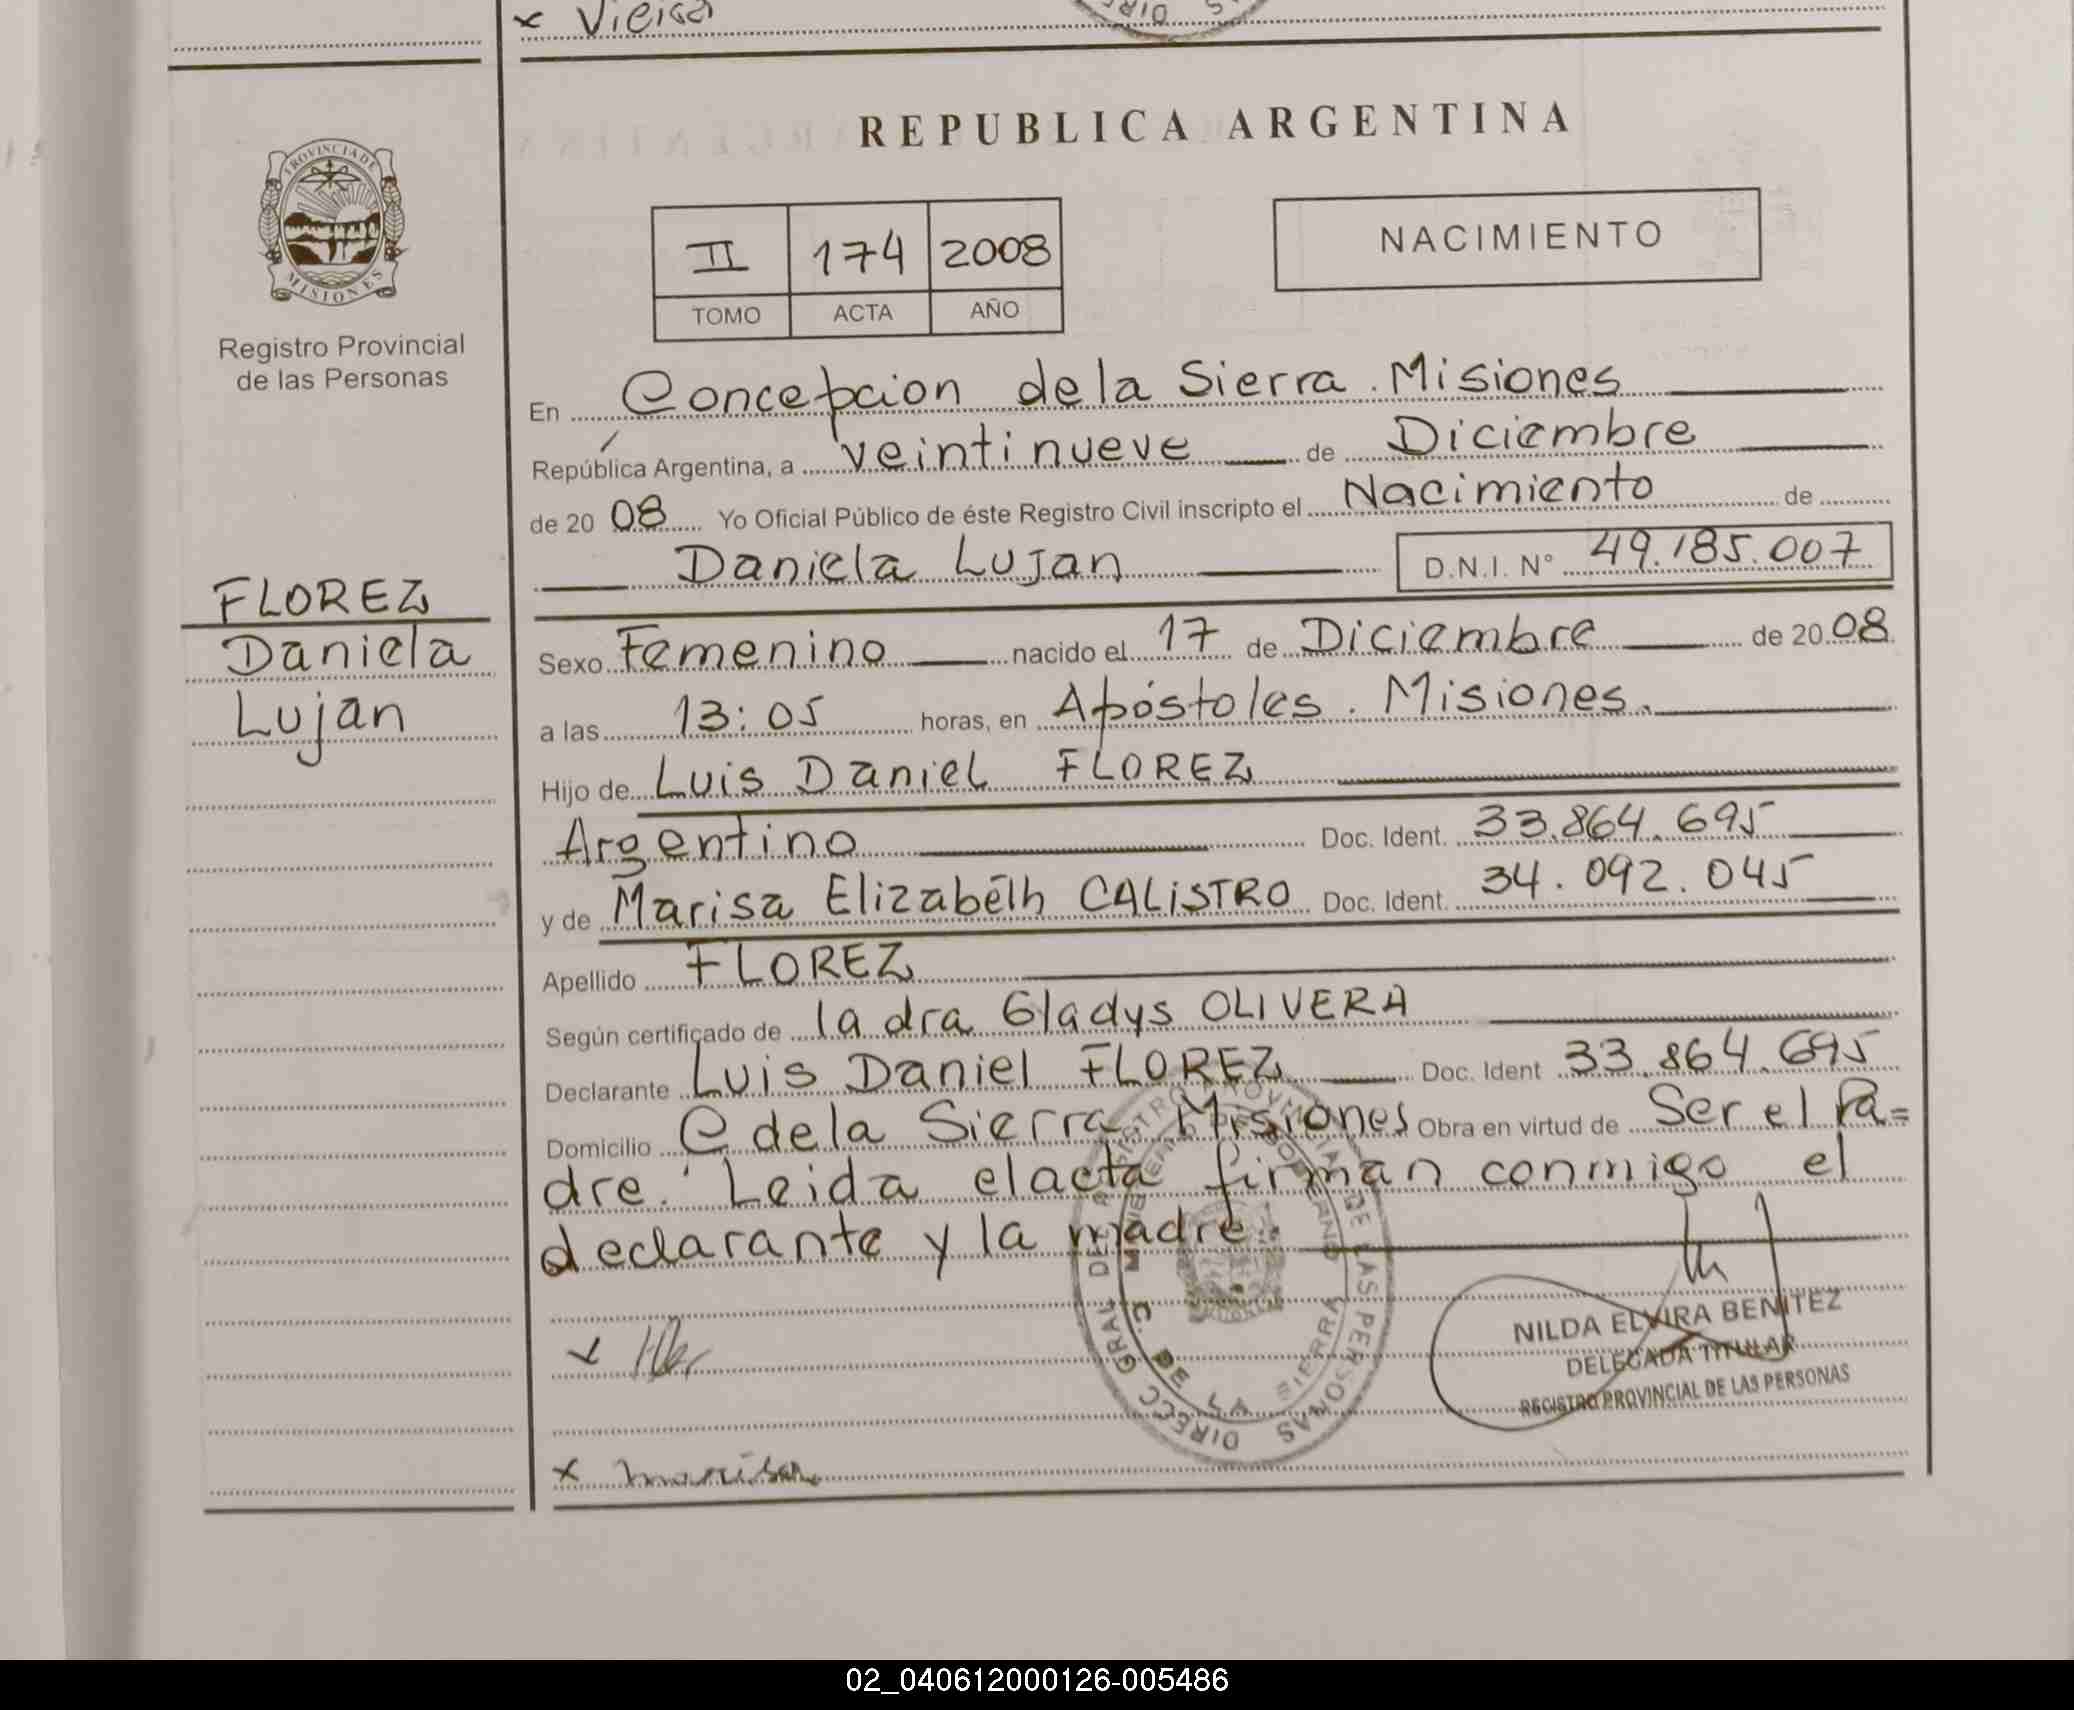 x Vieira
REPUBLICA ARGENTINA
PROVINCIA DE
MISIONES
Registro Provincial
de las Personas
II 174 2008
TOMO ACTA AÑO
NACIMIENTO
En Concepcion de la Sierra. Misiones
República Argentina, a veintinueve de Diciembre
de 20 08 Yo Oficial Público de éste Registro Civil inscripto el Nacimiento de
Daniela Lujan D.N.I. N° 49.185.007
FLOREZ
Daniela
Lujan
Sexo Femenino nacido el 17 de Diciembre de 20 08
a las 13:05 horas, en Apóstoles. Misiones.
Hijo de Luis Daniel FLOREZ
Argentino Doc. Ident. 33.864.695
y de Marisa Elizabéth CALISTRO Doc. Ident. 34.092.045
Apellido FLOREZ
Según certificado de la dra Gladys OLIVERA
Declarante Luis Daniel FLOREZ Doc. Ident 33.864.695
Domicilio C de la Sierra Misiones Obra en virtud de Ser el Pa=
dre. Leida el acta firman conmigo el
declarante y la madre.
DIRECC GRAL DEL REGISTRO PROVINCIAL DE LAS PERSONAS
C. DE LA SIERRA
NILDA ELVIRA BENITEZ
DELEGADA TITULAR
REGISTRO PROVINCIAL DE LAS PERSONAS
x marisa
02_040612000126-005486